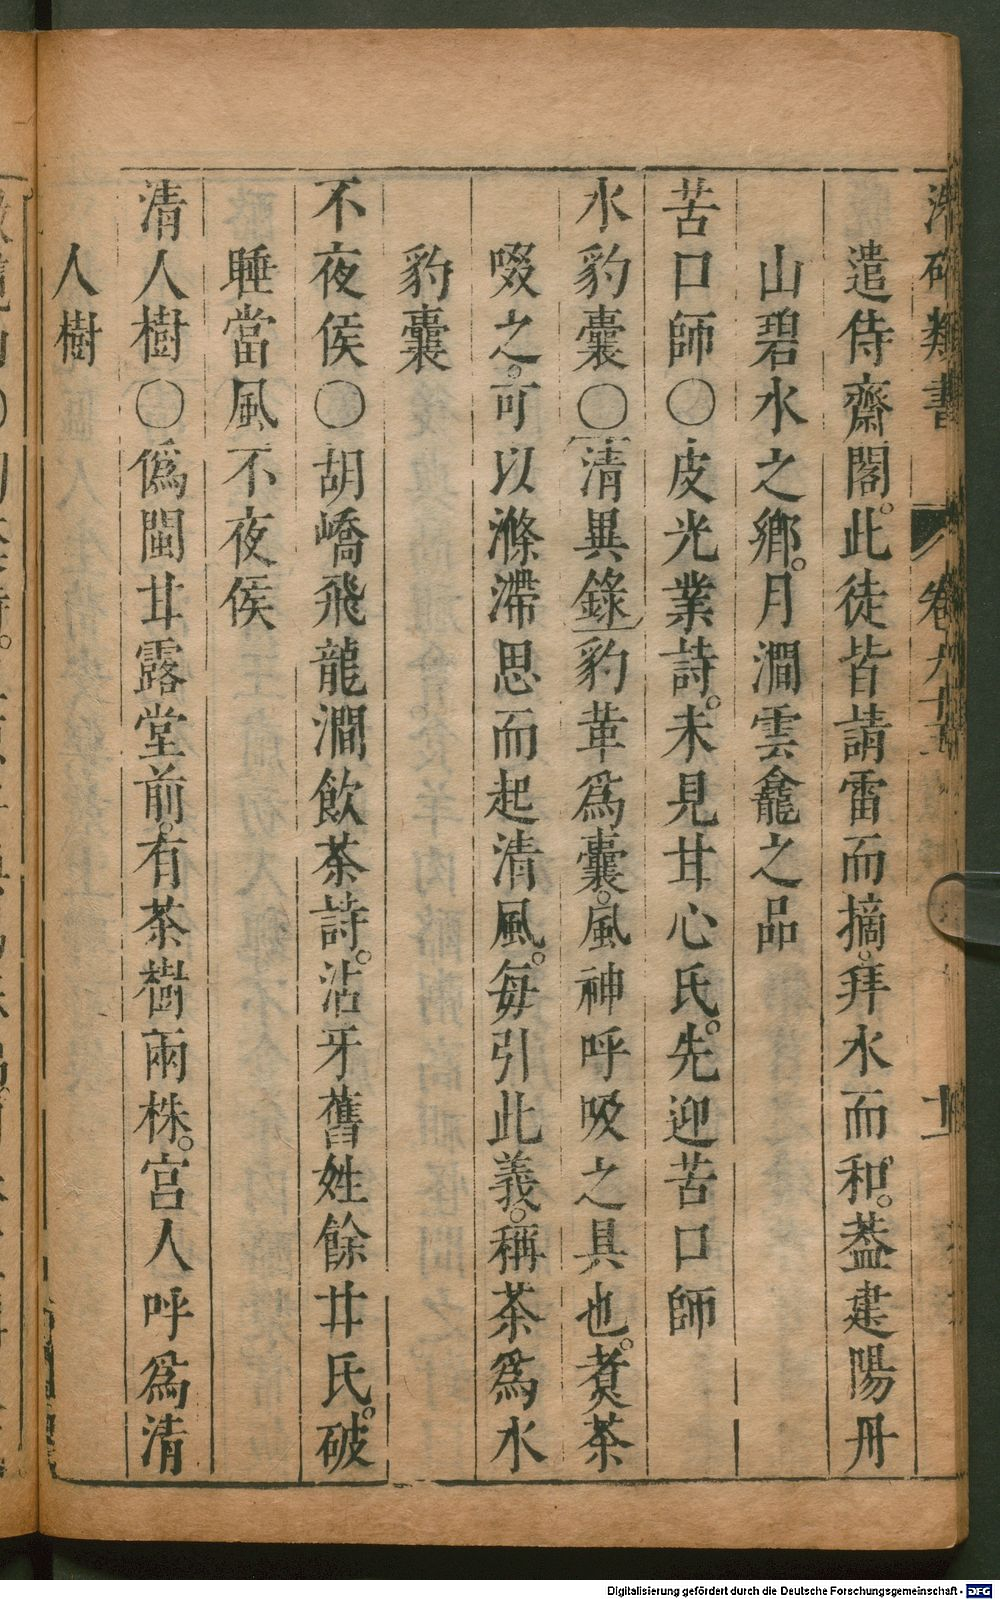 類書 卷九十五 十一
遣侍齋閣。此徒皆請雷而摘。拜水而和。蓋建陽丹
山碧水之鄉。月澗雲龕之品
苦口師〇皮光業詩。未見甘心氏。先迎苦口師
水豹囊〇清異錄豹革爲囊。風神呼吸之具也。煑茶
啜之。可以滌滯思而起清風。每引此義。稱茶爲水
豹囊
不夜侯〇胡嶠飛龍澗飲茶詩。沾牙舊姓餘甘氏。破
睡當風不夜侯
清人樹〇僞閩甘露堂前。有茶樹兩株。宮人呼爲清
人樹
Digitalisierung gefördert durch die Deutsche Forschungsgemeinschaft - DFG